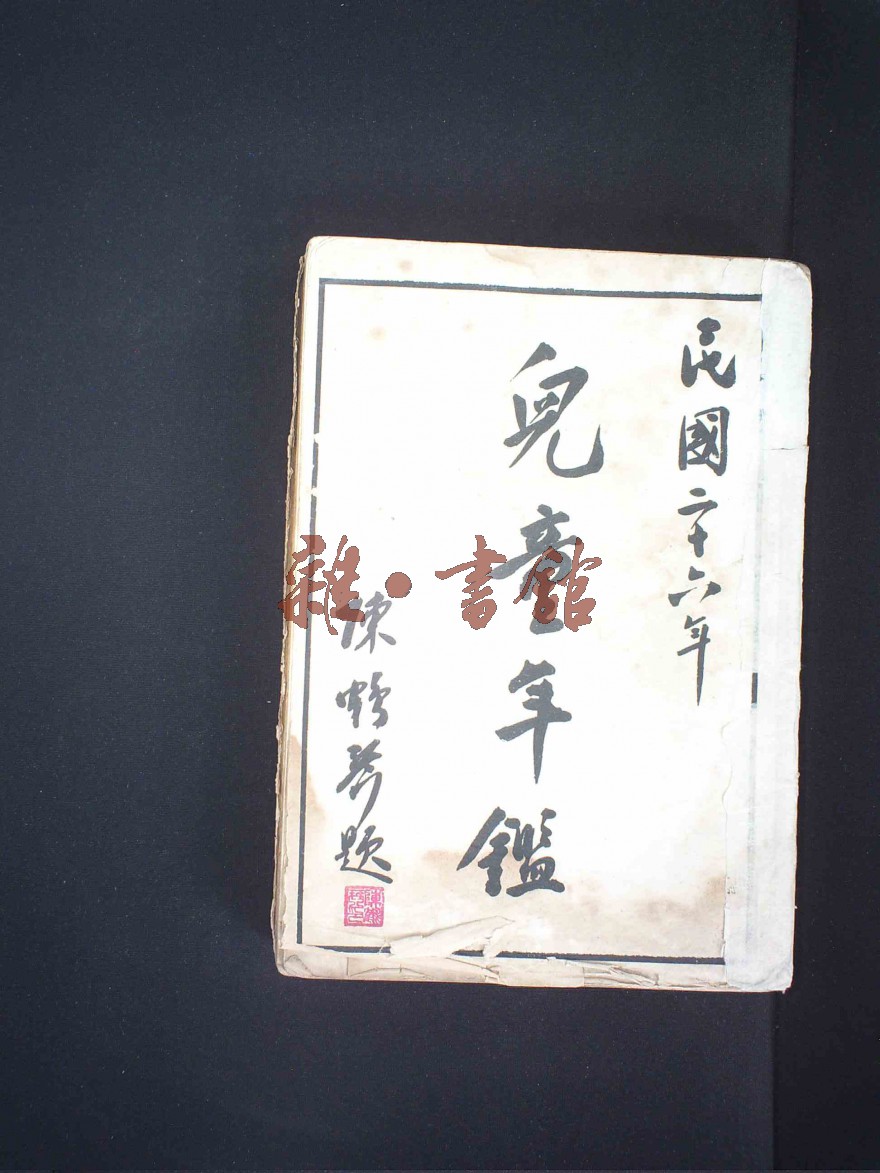 民國二十六年
兒童年鑑
陳鶴琴題
雜·書館